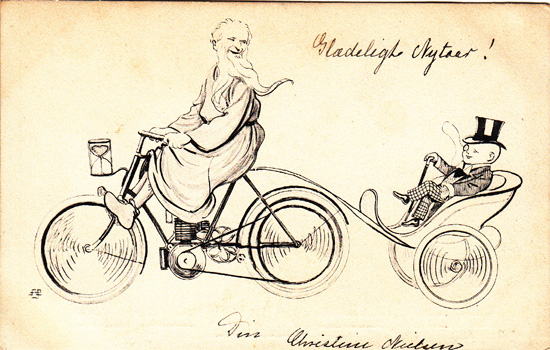 Glædeligt Nytaar!
Din
Christine Nielsen